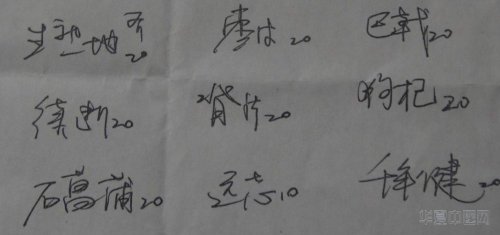 生熟地 各20 枣皮20 巴戟20
续断20 20 枸杞20
石菖蒲20 远志10 千年健20
华夏中医网